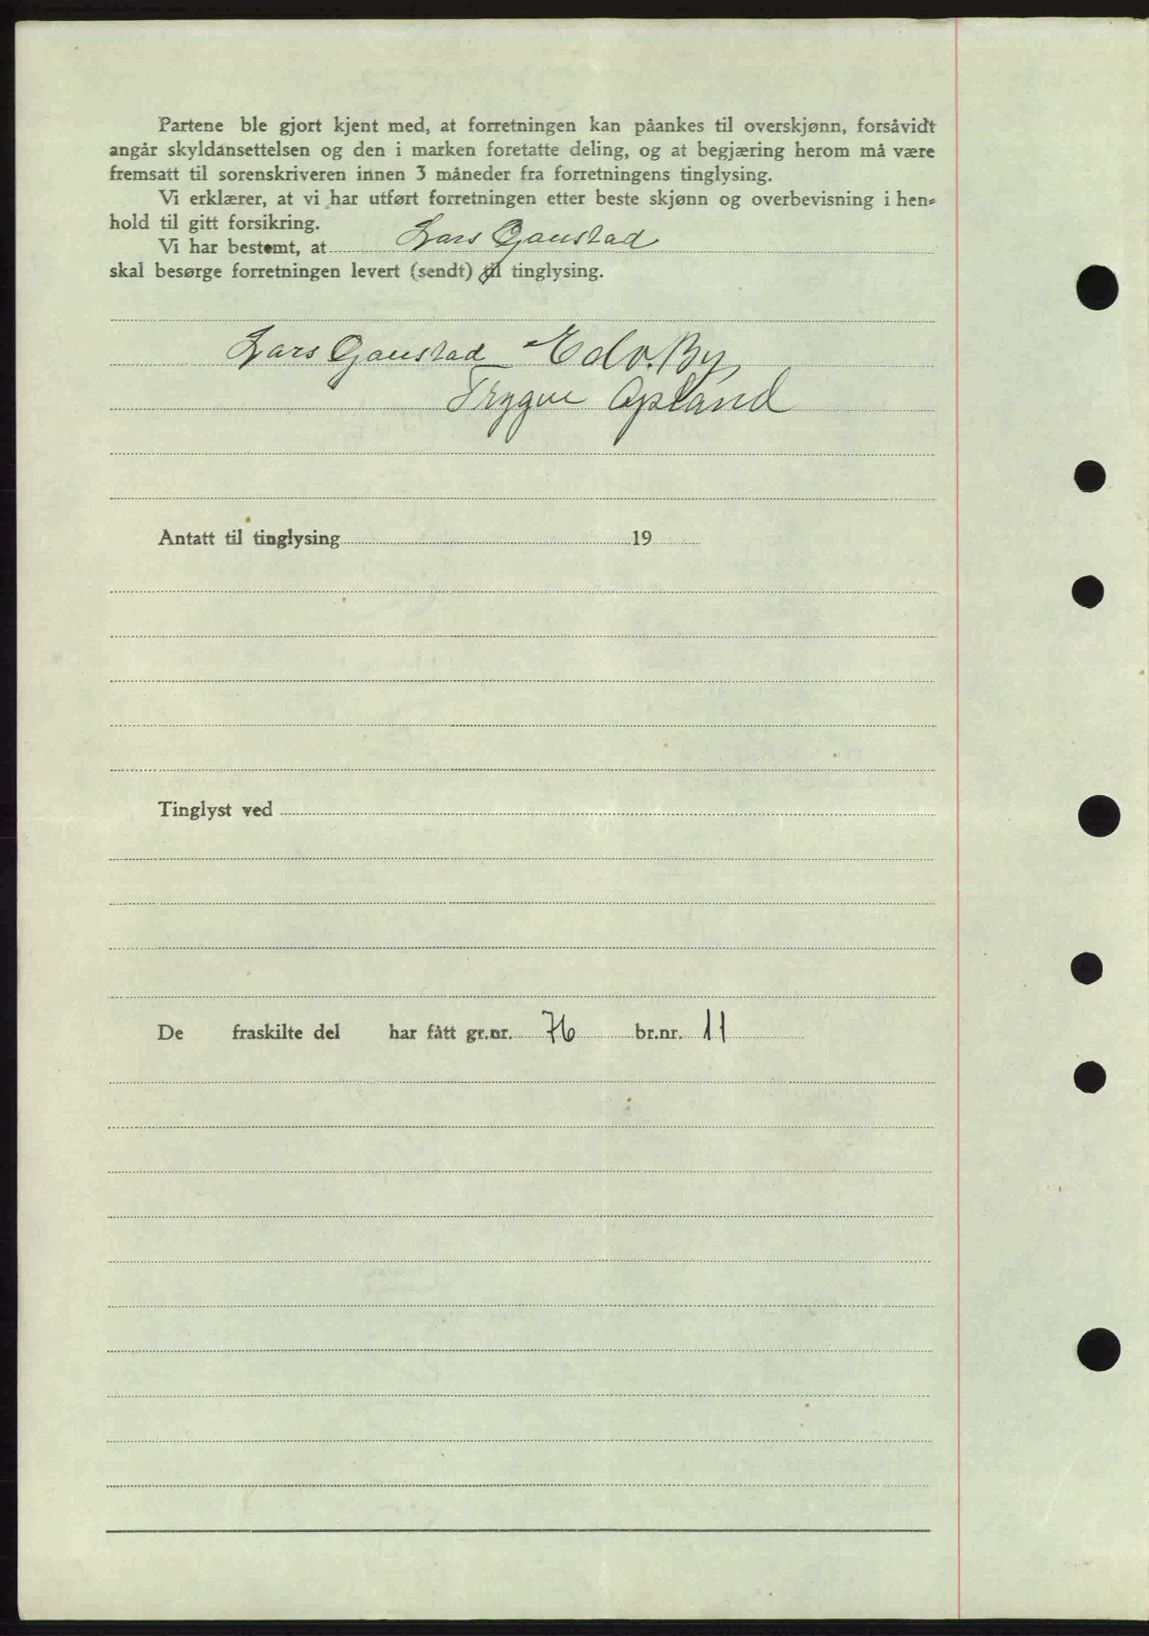 Partene ble gjort kjent med, at forretningen kan påankes til overskjønn, forsåvidt
angår skyldansettelsen og den i marken foretatte deling, og at begjæring herom må være
fremsatt til sorenskriveren innen 3 måneder fra forretningens tinglysing.
Vi erklærer, at vi har utført forretningen etter beste skjønn og overbevisning i hen-
hold til gitt forsikring.
Vi har bestemt, at Lars Gaustad
skal besørge forretningen levert (sendt) til tinglysing.
Lars Gaustad Edv. By
Trygve Opland
Antatt til tinglysing 19
Tinglyst ved
De fraskilte del har fått gr.nr. 76 br.nr. 11